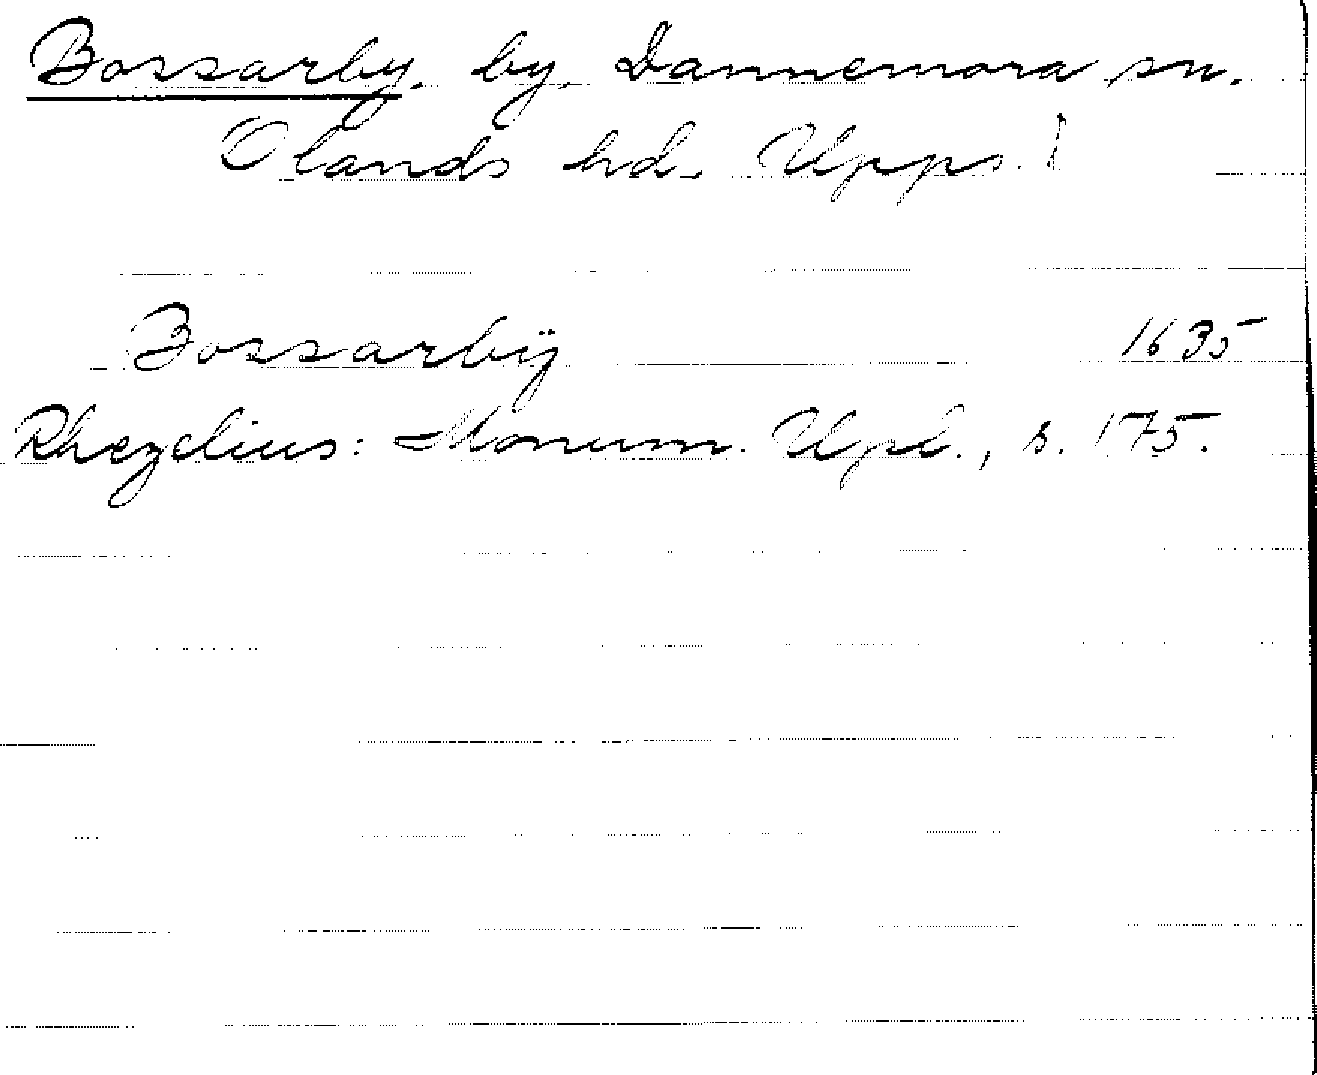 Bossarby, by, Dannemora sn.
Olands hd. Upps. l
Bossarbÿ 1635
Rhezelius: Monum. Upl., s. 175.